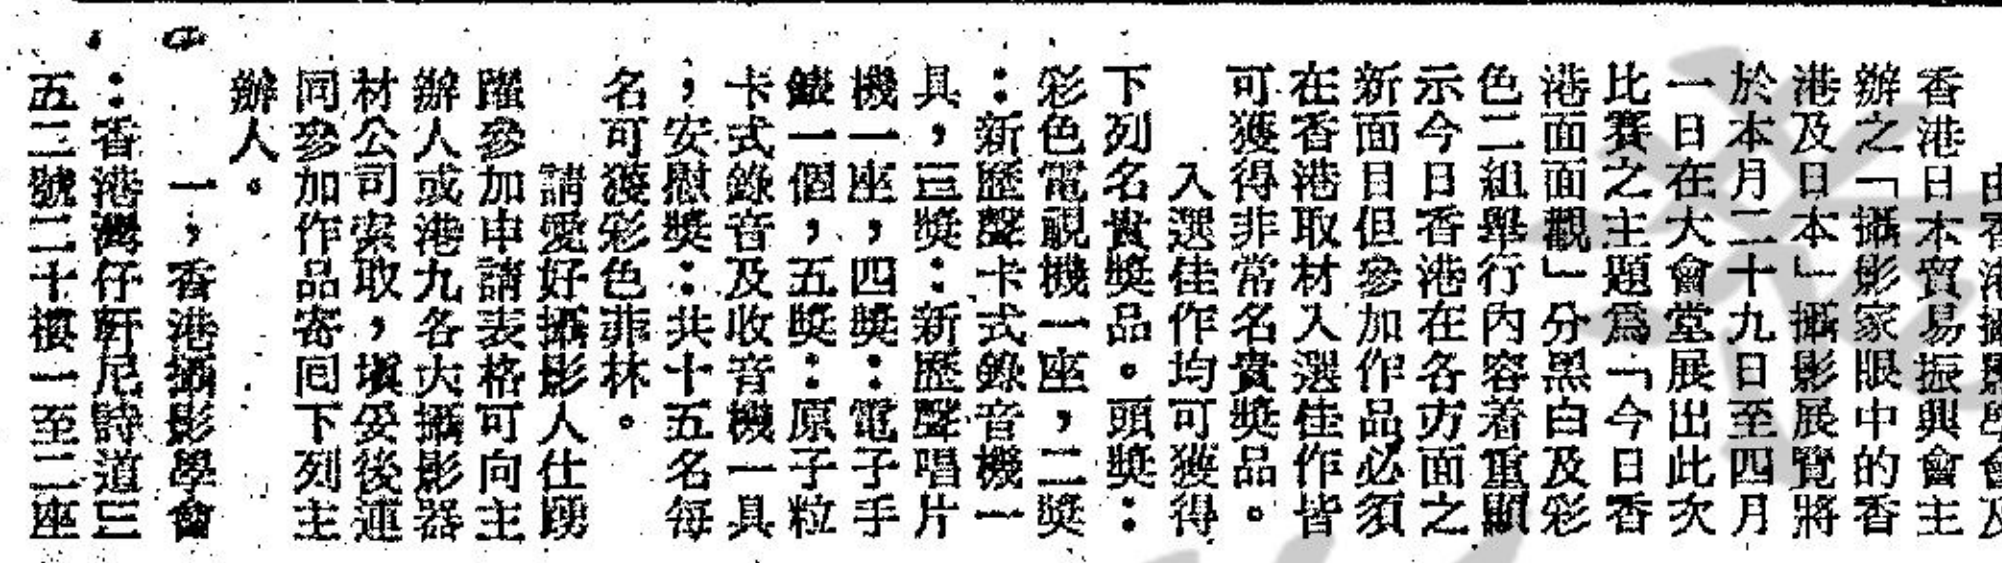 由香港攝影學會及
香港日本貿易振興會主
辦之「攝影家眼中的香
港及日本」攝影展覽將
於本月二十九日至四月
一日在大會堂展出此次
比賽之主題爲「今日香
港面面觀」分黑白及彩
色二組舉行內容着重顯
示今日香港在各方面之
新面目但參加作品必須
在香港取材入選佳作皆
可獲得非常名貴獎品。
入選佳作均可獲得
下列名貴獎品。頭獎：
彩色電視機一座，二獎
：新歷聲卡式錄音機一
具，三獎：新歷聲唱片
機一座，四獎：電子手
錶一個，五獎：原子粒
卡式錄音及收音機一具
，安慰獎：共十五名每
名可獲彩色菲林。
請愛好攝影人仕踴
躍參加申請表格可向主
辦人或港九各大攝影器
材公司索取，塡妥後連
同參加作品寄囘下列主
辦人。
一，香港攝影學會
：香港灣仔軒尼詩道三
五二號二十樓一至二座